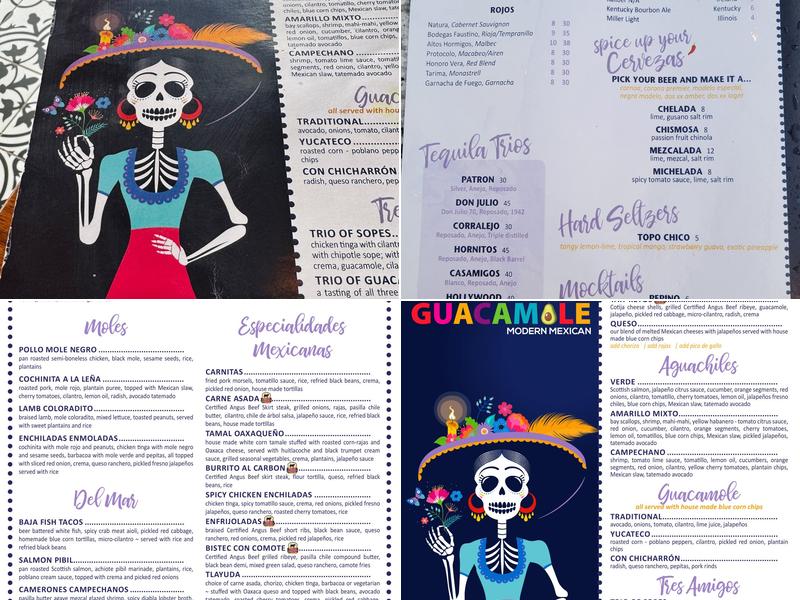 AMARILLO MIXTO
bay scallops, shrimp, mahi-mahi, yellow
red onion, cucumber, citrus, orange
lemon oil, tomatillos, blue corn chips,
tatemado avocado
CAMPECHANO
shrimp, tomato lime sauce, tomat
segments, red onion, cilantro, yello
Mexican slaw, tatemado avocado
Guac
all served with hou
TRADITIONAL
avocado, onions, tomato, cilant
YUCATECO
roasted corn - poblano pepp
chips
CON CHICHARRÓN
radish, queso ranchero, pep
Tre
TRIO OF SOPES
chicken tinga with cilant
with chipotle sope; with
crema, guacamole, cila
TRIO OF GUAC
a tasting of all three
ROJOS
Natura, Cabernet Sauvignon 8 30
Bodegas Faustino, Rioja/Tempranillo 9 35
Altos Hormigos, Malbec 10 38
Protocolo, Macabeo/Airen 8 30
Honoro Vera, Red Blend 8 30
Tarima, Monastrell 8 30
Garnacha de Fuego, Garnacha 8 30
Tequila Trios
PATRON 30
Silver, Anejo, Reposado
DON JULIO 45
Don Julio 70, Reposado, 1942
CORRALEJO 30
Reposado, Anejo, Triple distilled
HORNITOS 45
Reposado, Anejo, Black Barrel
CASAMIGOS 40
Blanco, Reposado, Anejo
HOLLYWOOD 40
Kentucky Bourbon Ale Kentucky 6
Miller Light Illinois 4
spice up your
Cervezas
PICK YOUR BEER AND MAKE IT A...
corona, corona premier, modelo especial,
negra modelo, dos xx amber, dos xx lager
CHELADA 8
lime, gusano salt rim
CHISMOSA 8
passion fruit chinola
MEZCALADA 12
lime, mezcal, salt rim
MICHELADA 8
spicy tomato sauce, lime, salt rim
Hard Seltzers
TOPO CHICO 5
tangy lemon-lime, tropical mango, strawberry guava, exotic pineapple
Mocktails
PEPINO
Moles
POLLO MOLE NEGRO
pan roasted semi-boneless chicken, black mole, sesame seeds, rice,
plantains
COCHINITA A LA LEÑA
roasted pork, mole, plantain puree, topped with Mexican slaw,
cherry tomatoes, cilantro, lemon oil, radish, avocado tatemado
LAMB COLORADITO
braised lamb, mole coloradito, mixed lettuce, toasted peanuts, served
with sweet plantains and rice
ENCHILADAS ENMOLADAS
cochinita with mole rojo and peanuts, chicken tinga with mole negro
and sesame seeds, barbacoa with mole verde and pepitas, all topped
with sliced red onion, crema, queso ranchero, pickled fresno jalapeños
served with rice
Del Mar
BAJA FISH TACOS
beer battered white fish, spicy crab meat aioli, pickled red cabbage,
homemade blue corn tortillas, micro-cilantro ~ served with rice and
refried black beans
SALMON PIBIL
pan roasted Scottish salmon, achiote pibil marinade, plantains, rice,
poblano cream sauce, topped with crema and picked red onions
CAMERONES CAMPECHANOS
pasilla butter agave mezcal glazed shrimp, spicy diabla lobster broth,
Especialidades
Mexicanas
CARNITAS
fried pork morsels, tomatillo sauce, rice, refried black beans, crema,
pickled red onion, house made tortillas
CARNE ASADA
Certified Angus Beef Skirt steak, grilled onions, rajas, pasilla chile
butter, cilantro, chile de árbol salsa, jalapeño sauce, rice, refried black
beans, house made tortillas
TAMAL OAXAQUEÑO
house made white corn tamale stuffed with roasted corn-rajas and
Oaxaca cheese, served with huitlacoche and black trumpet cream
sauce, grilled seasonal vegetables, crema, plantains, jalapeño sauce
BURRITO AL CARBON
Certified Angus Beef skirt steak, flour tortilla, queso, refried black
beans, rice
SPICY CHICKEN ENCHILADAS
chicken tinga, spicy tomato crema, rice, crema, pickled fresnos jalapeños,
queso ranchero, roasted cherry tomatoes, rice
ENFRIJOLADAS
braised Certified Angus Beef short ribs, black bean sauce, queso
ranchero, red onions, crema, pickled red jalapeños, rice
BISTEC CON COMOTE
Certified Angus Beef grilled ribeye, pasilla chile compound butter,
black bean demi, mixed green salad, queso ranchero, camote fries
TLAYUDA
choice of carne asada, chorizo, chicken tinga, barbacoa or vegetarian
~ stuffed with Oaxaca queso and topped with black beans, avocado
GUACAMOLE
MODERN MEXICAN
Cotija cheese shells, grilled Certified Angus Beef ribeye, guacamole,
jalapeño, pickled red cabbage, micro-cilantro, radish, crema
QUESO
our blend of melted Mexican cheeses with jalapeños served with house
made blue corn chips
add chorizo | add rajas | add pico de gallo
Aguachiles
VERDE
Scottish salmon, jalapeño citrus sauce, cucumber, orange segments, red
onions, cilantro, tomatillos, yellow tomatoes, lemon oil, jalapeños fresno
chiles, blue corn chips, Mexican slaw, tatemado avocado
AMARILLO MIXTO
bay scallops, shrimp, mahi-mahi, yellow habanero -tomato citrus sauce,
red onion, cucumber, cilantro, orange segments, cherry tomatoes,
lemon oil, tomatillos, blue corn chips, Mexican slaw, pickled jalapeños,
tatemado avocado
CAMPECHANO
shrimp, tomato lime sauce, tomatillos, cucumber, lemon oil, orange
segments, red onion, cilantro, yellow cherry tomatoes, plantain chips,
Mexican slaw, tatemado avocado
Guacamole
all served with house made blue corn chips
TRADITIONAL
avocado, onions, tomato, cilantro, lime juice, jalapeños
YUCATECO
roasted corn - poblano peppers, cilantro, pickled red onion, plantain
chips
CON CHICHARRÓN
radish, queso ranchero, pepitas, pork rinds
Tres Amigos